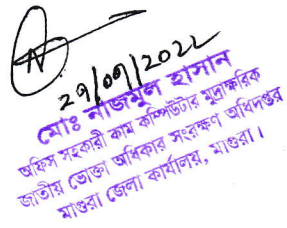 29/09/2022
মোঃ নাজমুল হাসান
অফিস সহকারী কাম কম্পিউটার মুদ্রাক্ষরিক
জাতীয় ভোক্তা অধিকার সংরক্ষণ অধিদপ্তর
মাগুরা জেলা কার্যালয়, মাগুরা।